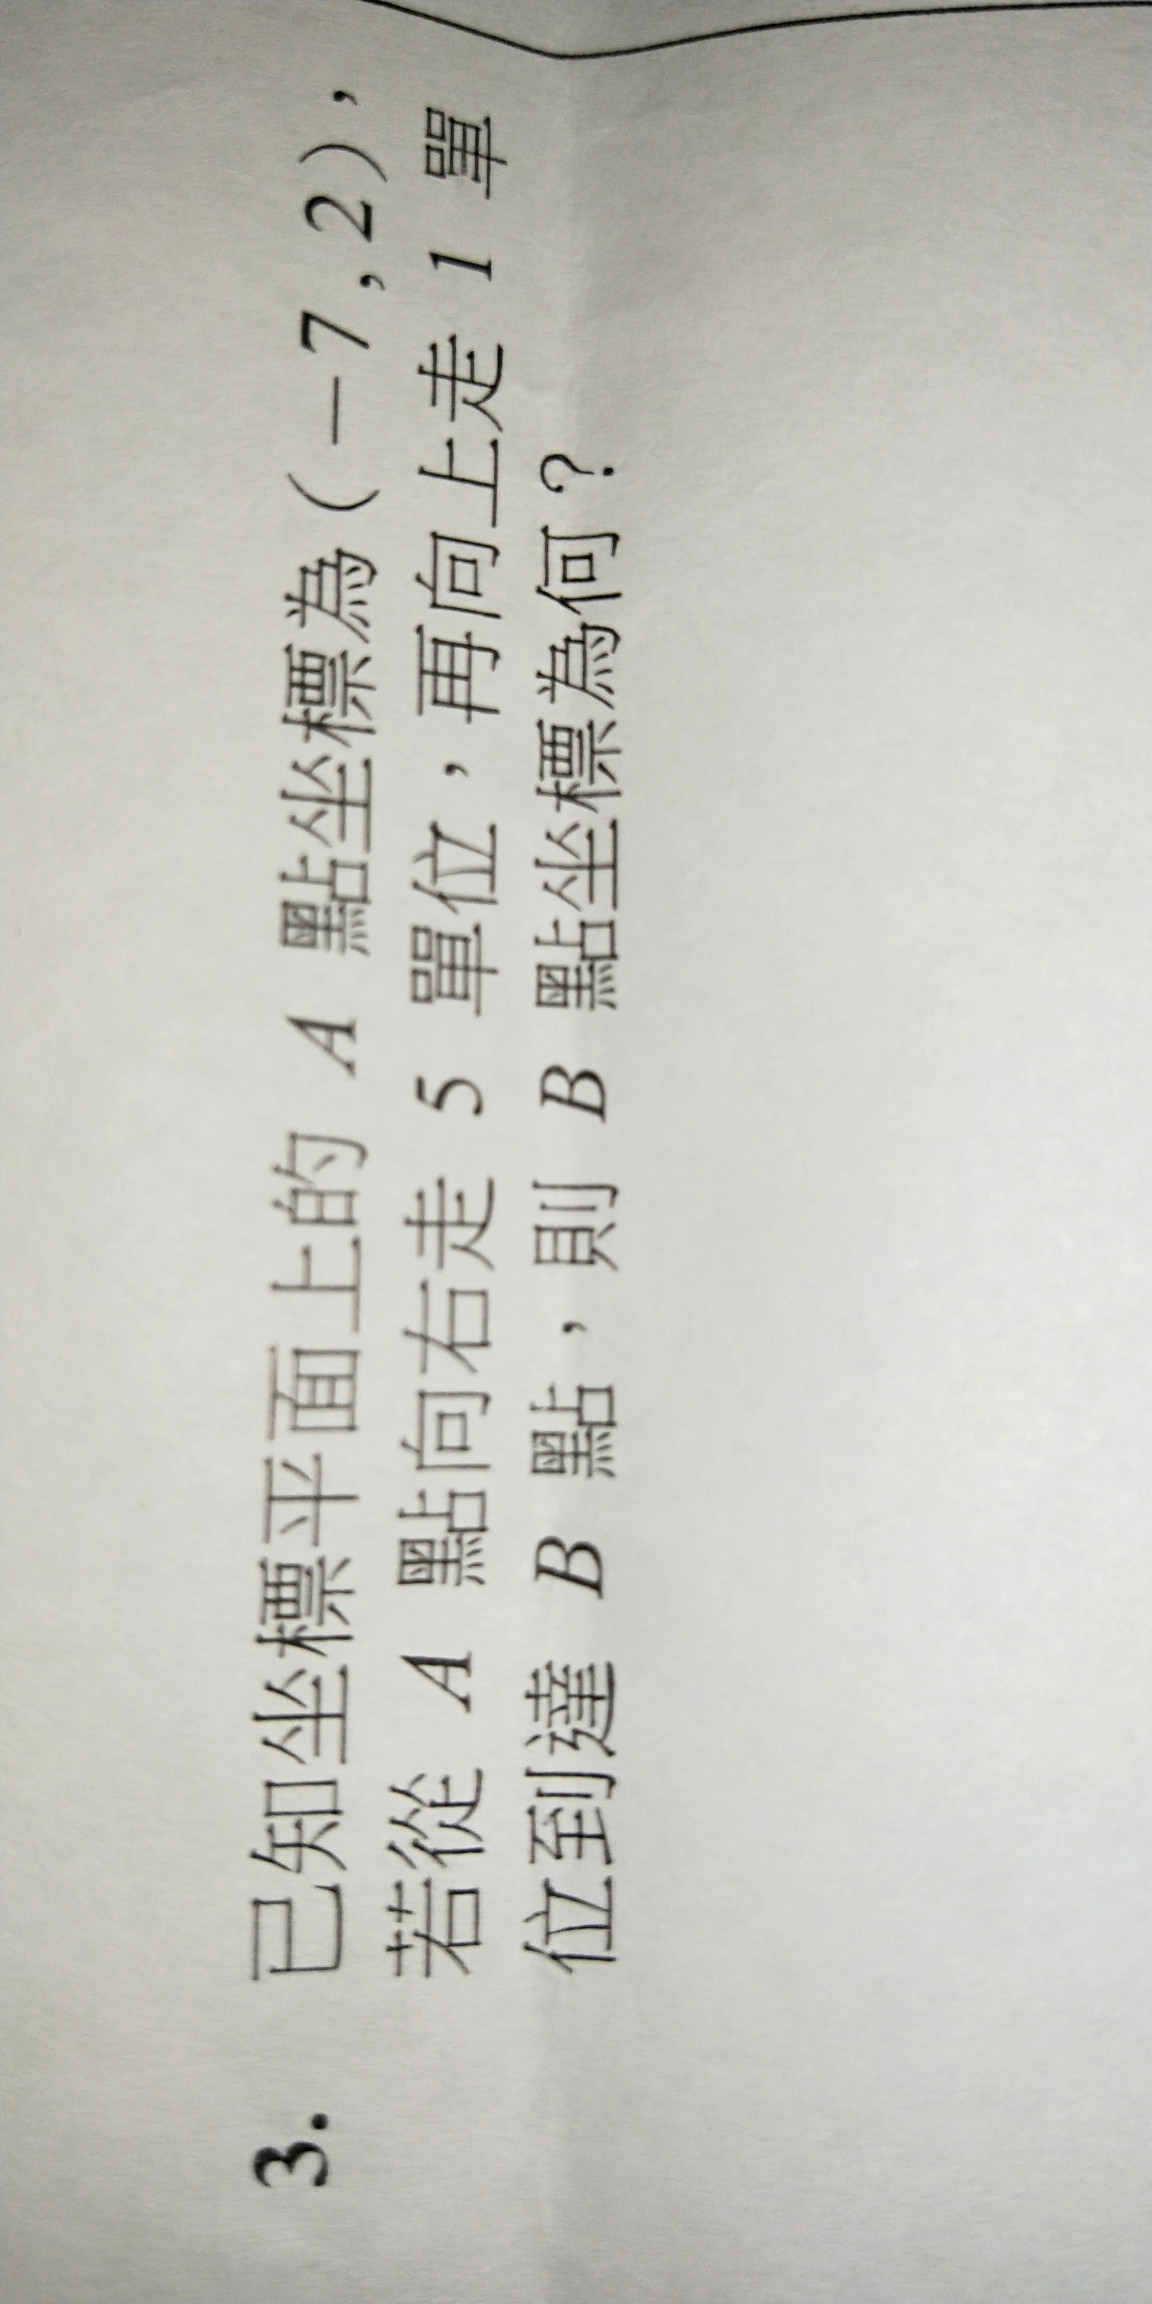 3. 已知坐標平面上的 A 點坐標為(－7,2)，
若從 A 點向右走 5 單位，再向上走 1 單
位到達 B 點，則 B 點坐標為何？